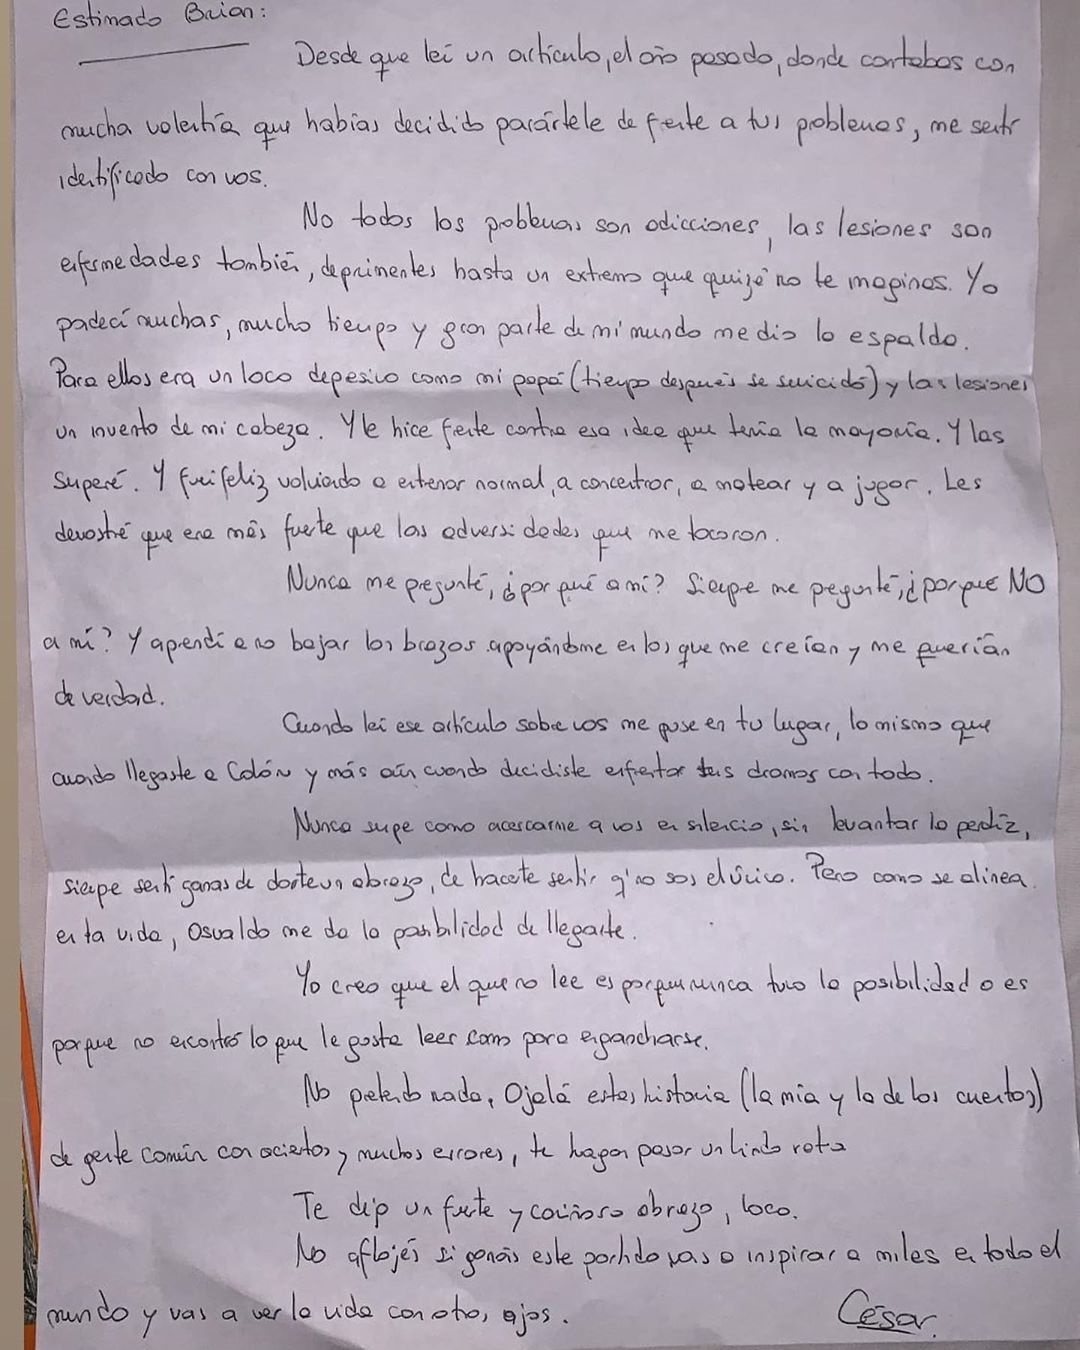 Estimado Brian:
Desde que leí un artículo, el año pasado, donde contabas con
mucha valentía que habías decidido parártele de frente a tus problemas, me sentí
identificado con vos.
No todos los problemas son adicciones, las lesiones son
enfermedades también, deprimentes hasta un extremo que quizá no te imaginas. Yo
padecí muchas, mucho tiempo y gran parte de mi mundo me dio la espalda.
Para ellos era un loco depresivo como mi papá (tiempo después se suicidó) y las lesiones
un invento de mi cabeza. Y le hice frente contra esa idea que tenía la mayoría. Y las
superé. Y fui feliz volviendo a entrenar normal, a concentrar, a matear y a jugar. Les
demostré que era más fuerte que las adversidades que me tocaron.
Nunca me pregunté, ¿por qué a mí? Siempre me pregunté, ¿porque NO
a mí? Y aprendí a no bajar los brazos apoyándome en los que me creían y me querían
de verdad.
Cuando leí ese artículo sobre vos me puse en tu lugar, lo mismo que
cuando llegaste a Colón y más aún cuando decidiste enfrentar tus dramas con todo.
Nunca supe como acercarme a vos en silencio, sin levantar la perdiz,
siempre sentí ganas de darte un abrazo, de hacerte sentir q' no sos el único. Pero como se alinea
en la vida, Osvaldo me da la posibilidad de llegarte.
Yo creo que el que no lee es porque nunca tuvo la posibilidad o es
porque no encontró lo que le gusta leer como para engancharse.
No pretendo nada, Ojalá estas historia (la mía y la de los cuentos)
de gente común con aciertos y muchos errores, te hagan pasar un lindo rato
Te dejo un fuerte y cariñoso abrazo, loco.
No aflojés si ganás este partido vas a inspirar a miles en todo el
mundo y vas a ver la vida con otros ojos.
César.